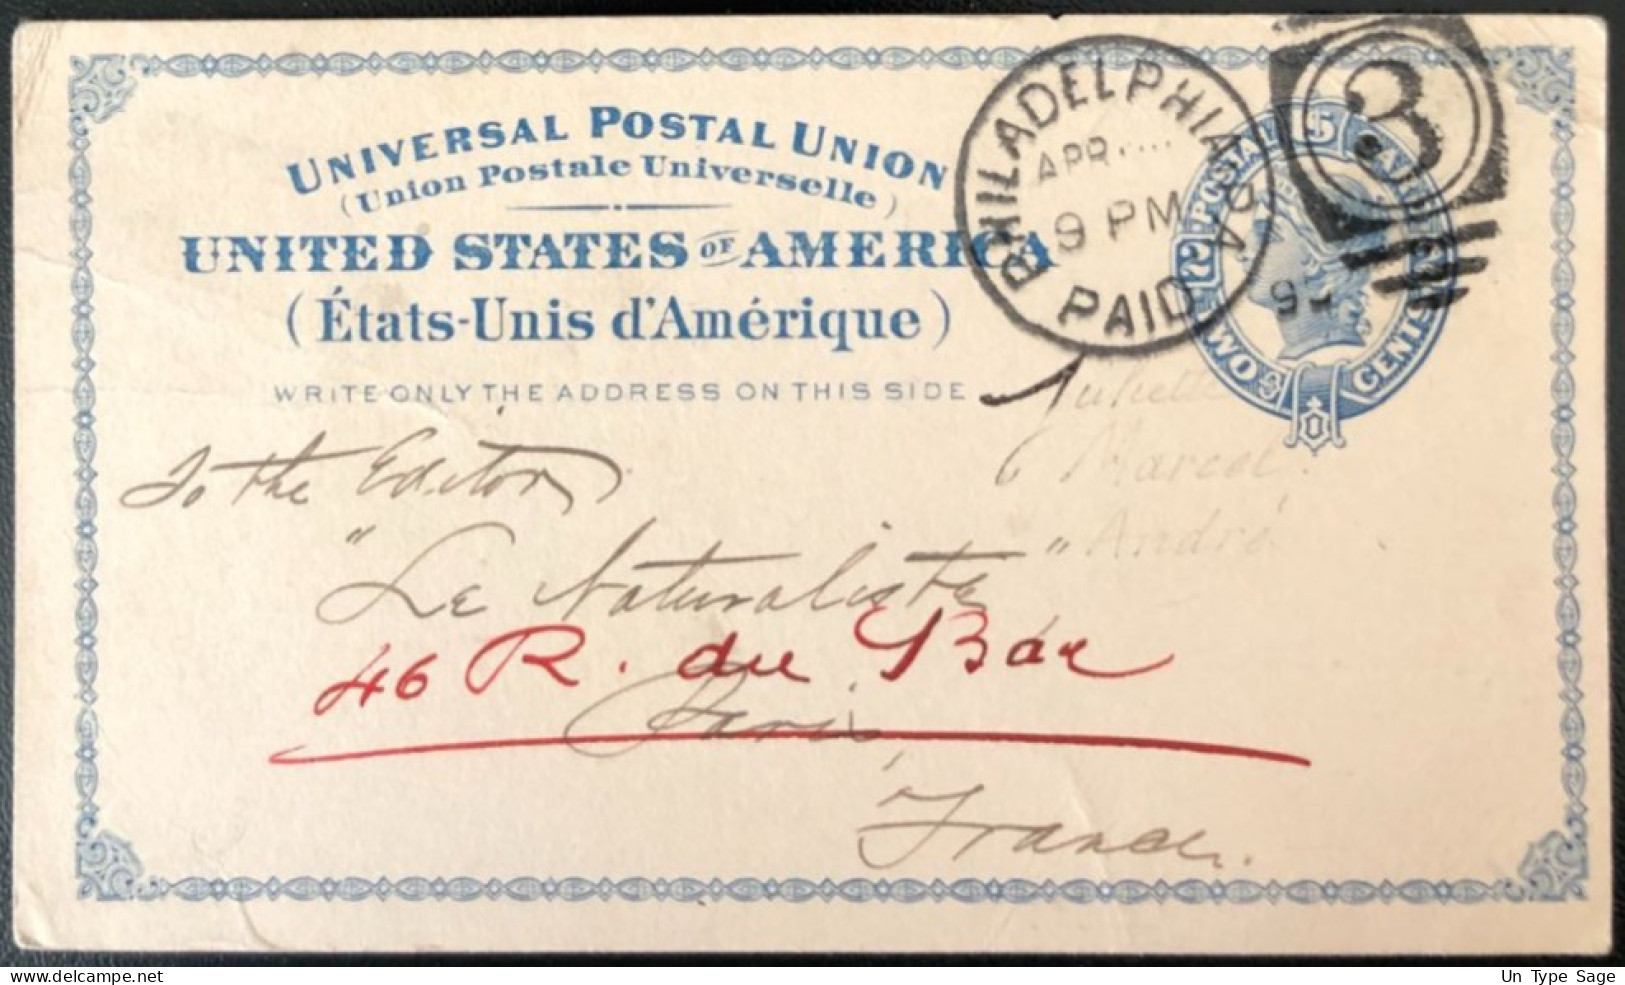 UNIVERSAL POSTAL UNION
(Union Postale Universelle)
UNITED STATES OF AMERICA
(États-Unis d'Amérique)
WRITE ONLY THE ADDRESS ON THIS SIDE
PHILADELPHIA, PA.
APR
9 PM
PAID
3
9
U.S. POSTAL CARD
2 2
TWO CENTS
Juliette
Marcel
André
To the Editor
"Le Naturaliste"
46 R. du Bac
Paris,
France.
delcampe.net
Un Type Sage